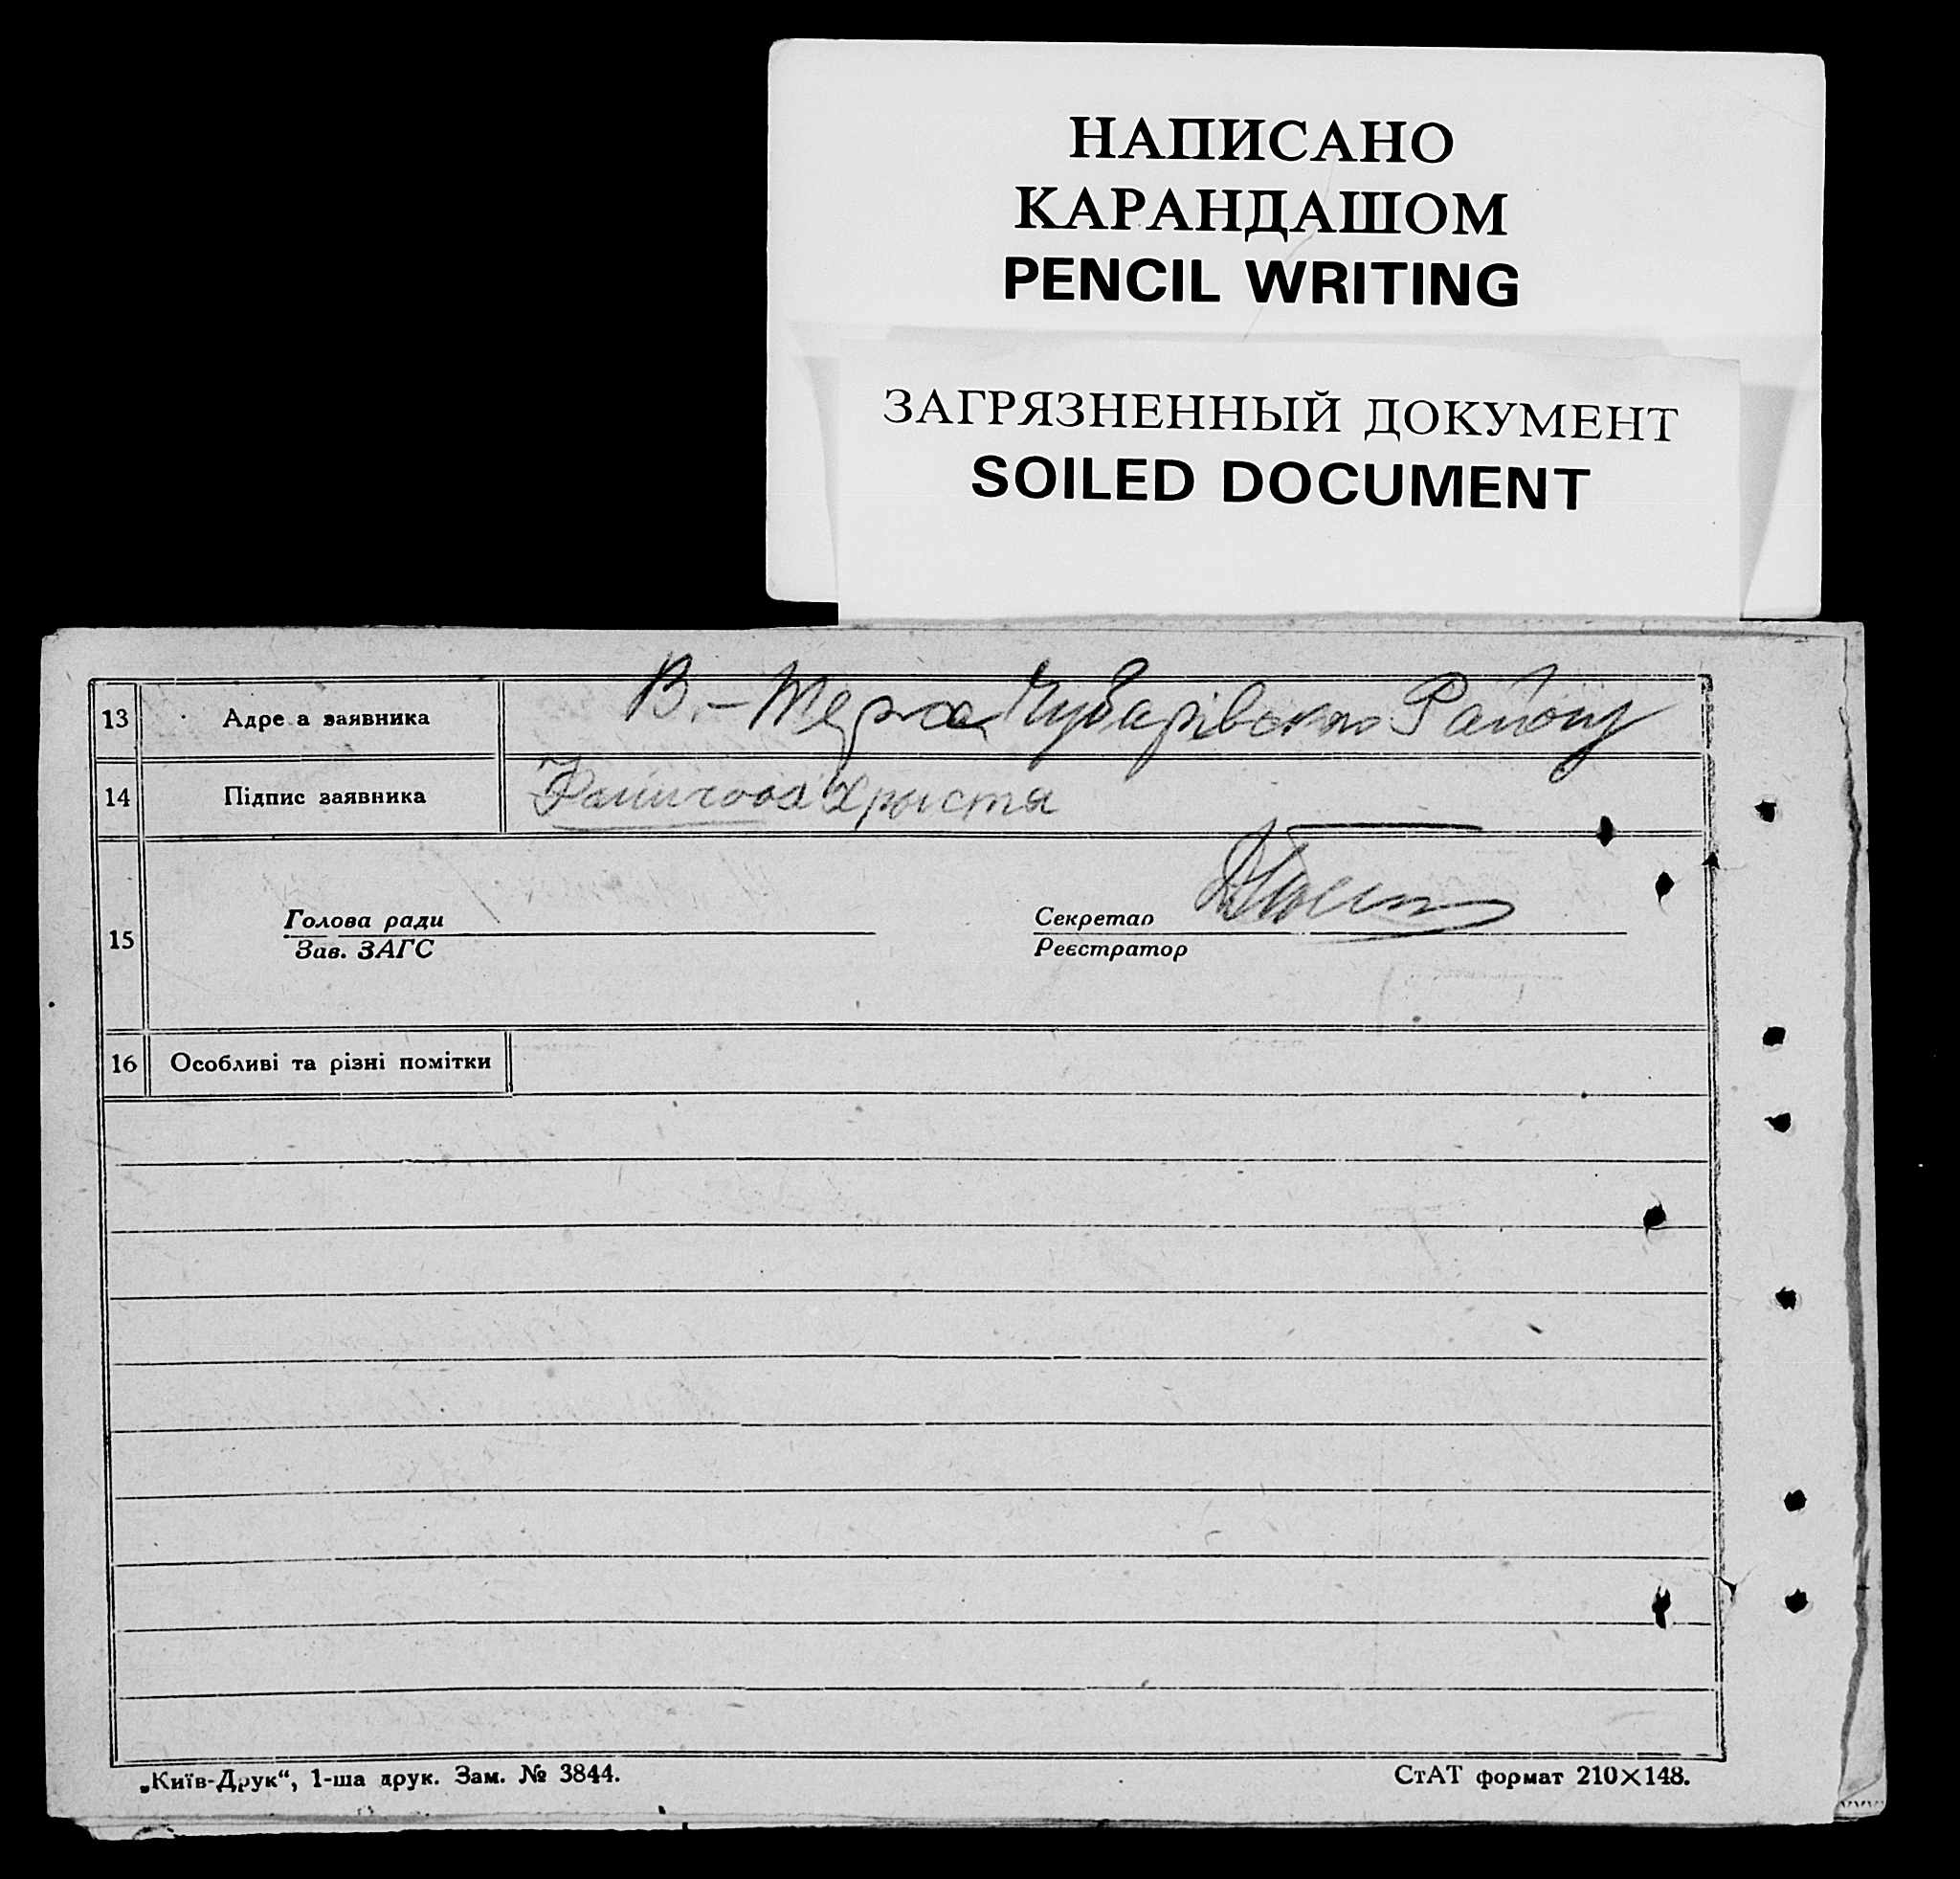 НАПИСАНО
КАРАНДАШОМ
PENCIL WRITING
ЗАГРЯЗНЕННЫЙ ДОКУМЕНТ
SOILED DOCUMENT
13 Адре а заявника В.-Терса Чубарівського Району
14 Підпис заявника Христя
15 Голова ради Секретар
Зав. ЗАГС Реєстратор
16 Особливі та різні помітки
„Київ-Друк“, 1-ша друк. Зам. № 3844. СтАТ формат 210×148.